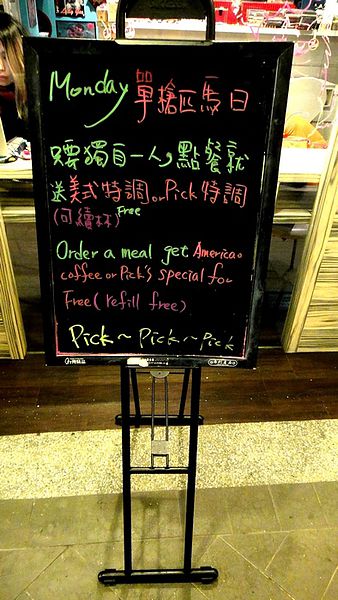 Monday 單槍匹馬日
獨自一人，點餐就
送美式特調or Pick特調
(可續杯) Free
Order a meal get Americao
coffee or Pick's special for
Free (refill free)
Pick~Pick~Pick